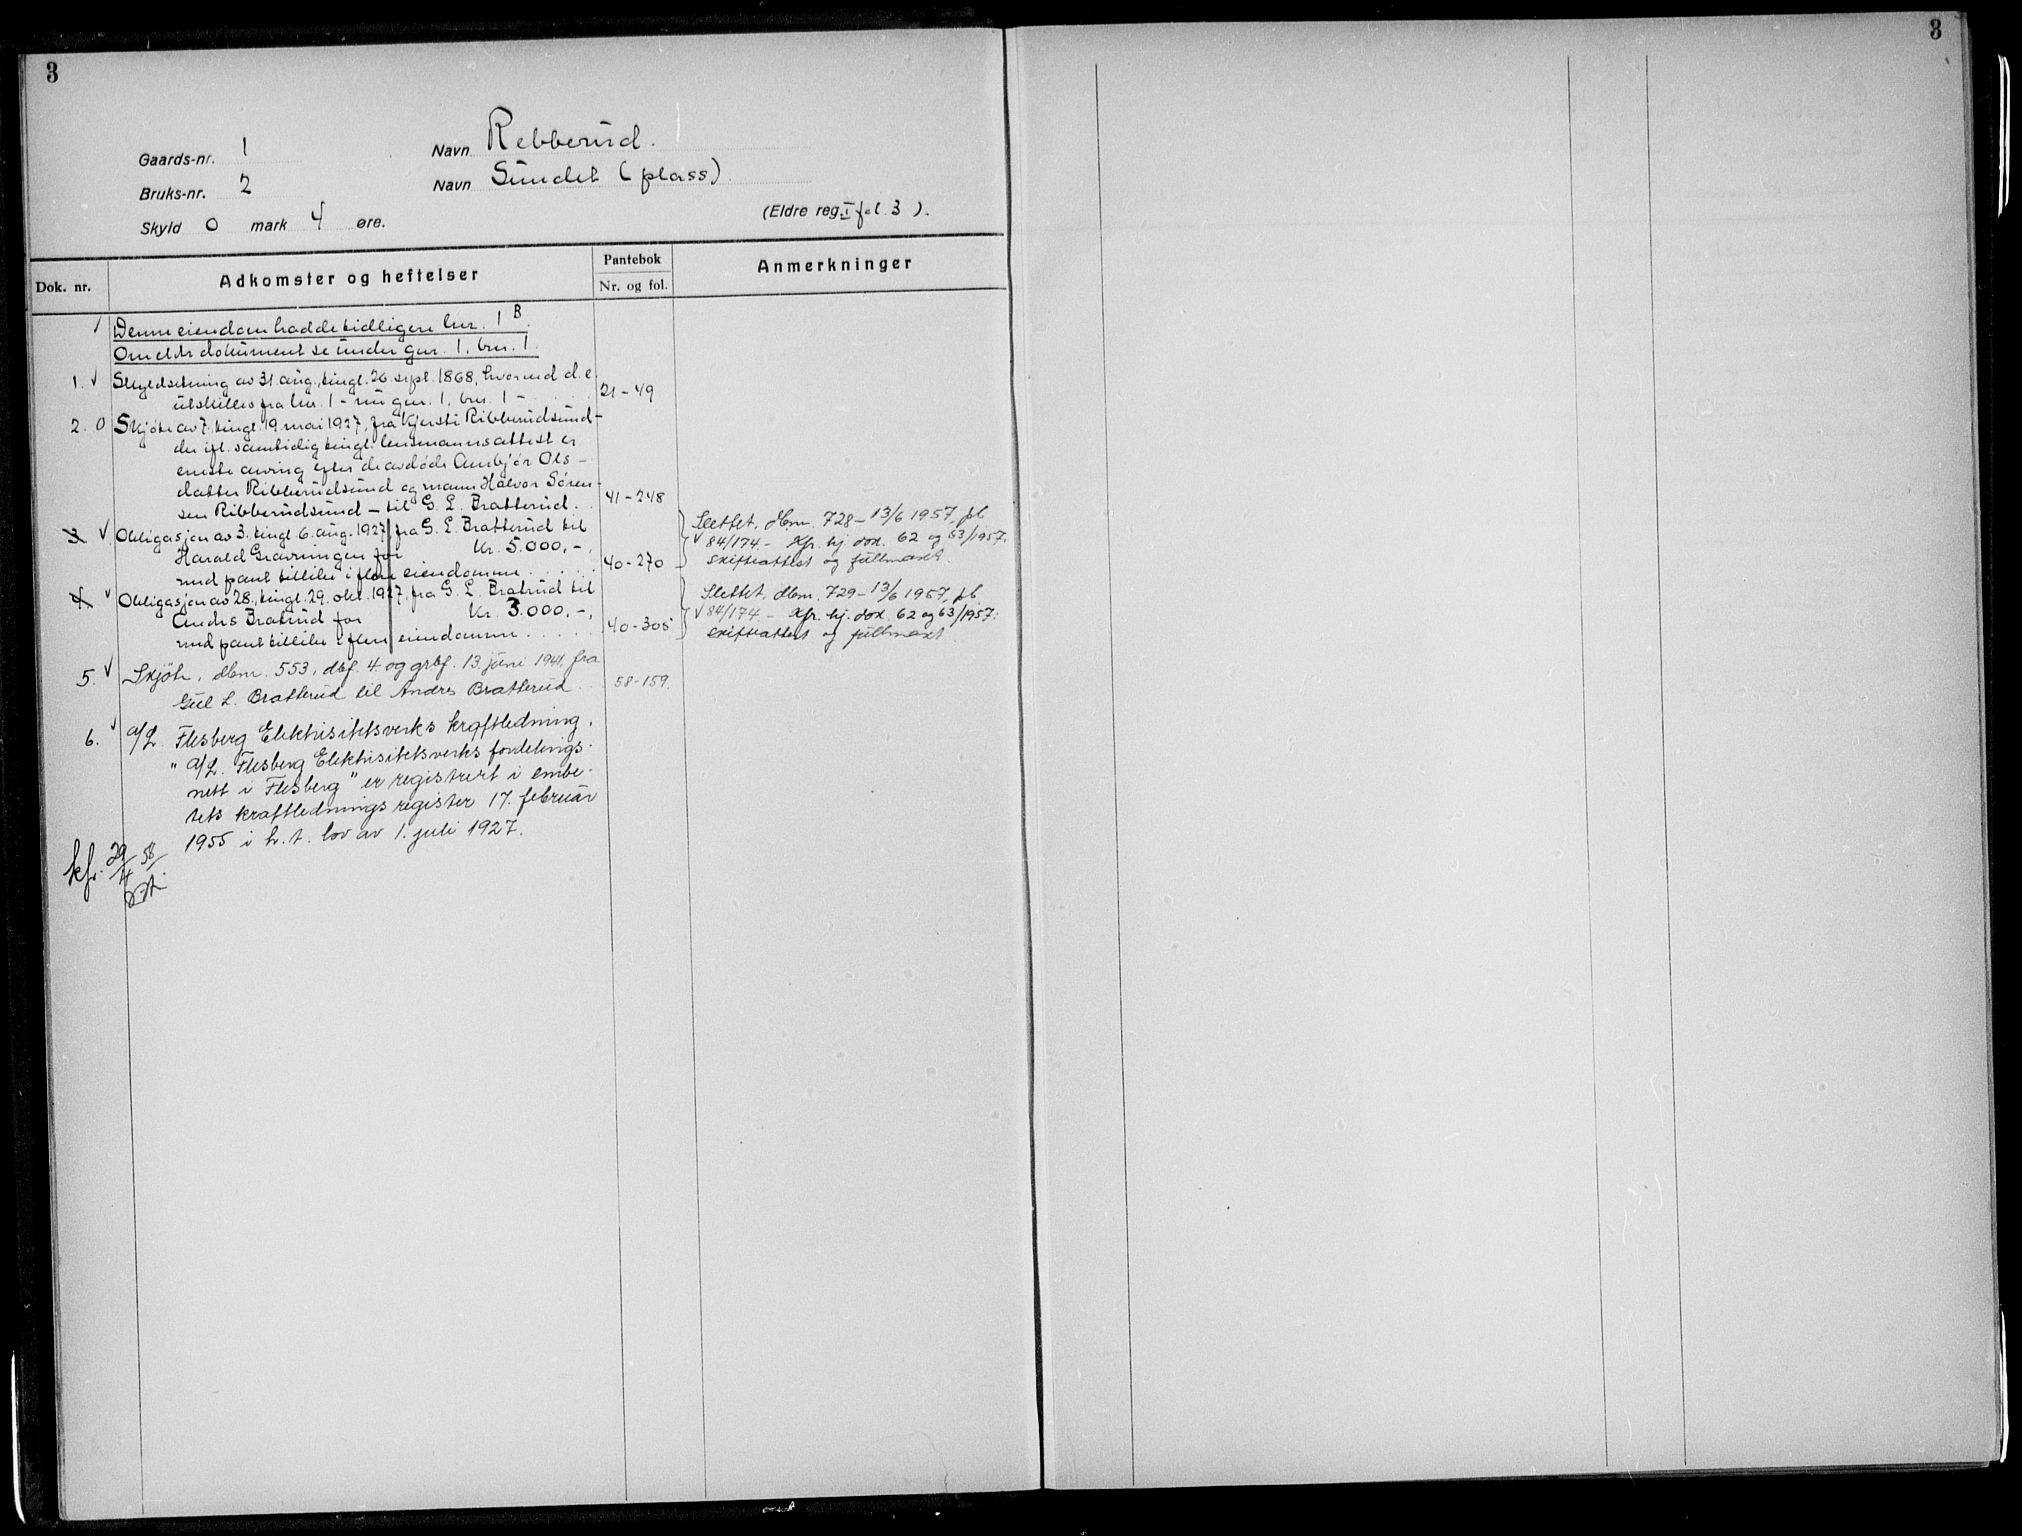 3
3
Gaards-nr. 1 Navn Rebberud.
Bruks-nr. 2 Navn Sundet (plass)
Skyld 0 mark 4 øre. (Eldre reg. I fol. 3).
Dok. nr. Adkomster og heftelser Pantebok Nr. og fol. Anmerkninger
Denne eiendom hadde tidligere lnr. 1 B.
Om eldr dokument se under gnr. 1, brn. 1.
1. Skyldsetning av 31 aug., tingl. 26. sept. 1868, hvorved d. e.
utskilles fra lnr. 1 - nu gnr. 1, brn. 1 - 21-49
2. 0 Skjøte av 7., tingl. 19. mai 1927, fra Kjersti Ribberudsund -
der ifl. samtidig tingl. lensmannsattest er
eneste arving efter de avdøde Anbjør Ols -
datter Ribberudsund og mann Halvor Søren -
sen Ribberudsund - til G. L. Bratterud. 41-248
3. Obligasjon av 3. tingl. 6. aug. 1927, fra G. L. Bratterud til
Harald Gravningen for Kr. 5.000,-,
med pant tillike i flere eiendomme 40-270
Slettet, dbnr. 728 - 13/6 1957, pb
84/174 - Kfr. hj. dok. 62 og 63/1957:
skifteattest og fullmakt.
4. Obligasjon av 28., tingl. 29. okt. 1927, fra G. L. Bratrud til
Andrs Bratrud for Kr. 3.000,-,
med pant tillike i flere eiendomme 40-305
Slettet, dbnr. 729 - 13/6 1957, pb
84/174 - Kfr. hj. dok. 62 og 63/1957:
skifteattest og fullmakt.
5. Skjøte, dbnr. 553, dbf. 4. og grbf. 13. juni 1941, fra
Gul L. Bratterud til Andres Bratterud 58-159.
6. A/L. Flesberg Elektrisitetsverks kraftledning,
" A/L. Flesberg Elektrisitetsverks fordelings-
nett i Flesberg" er registrert i embe-
tets kraftledningsregister 17. februar
1955 i h. t. lov av 1. juli 1927.
kfr. 29/4 58/